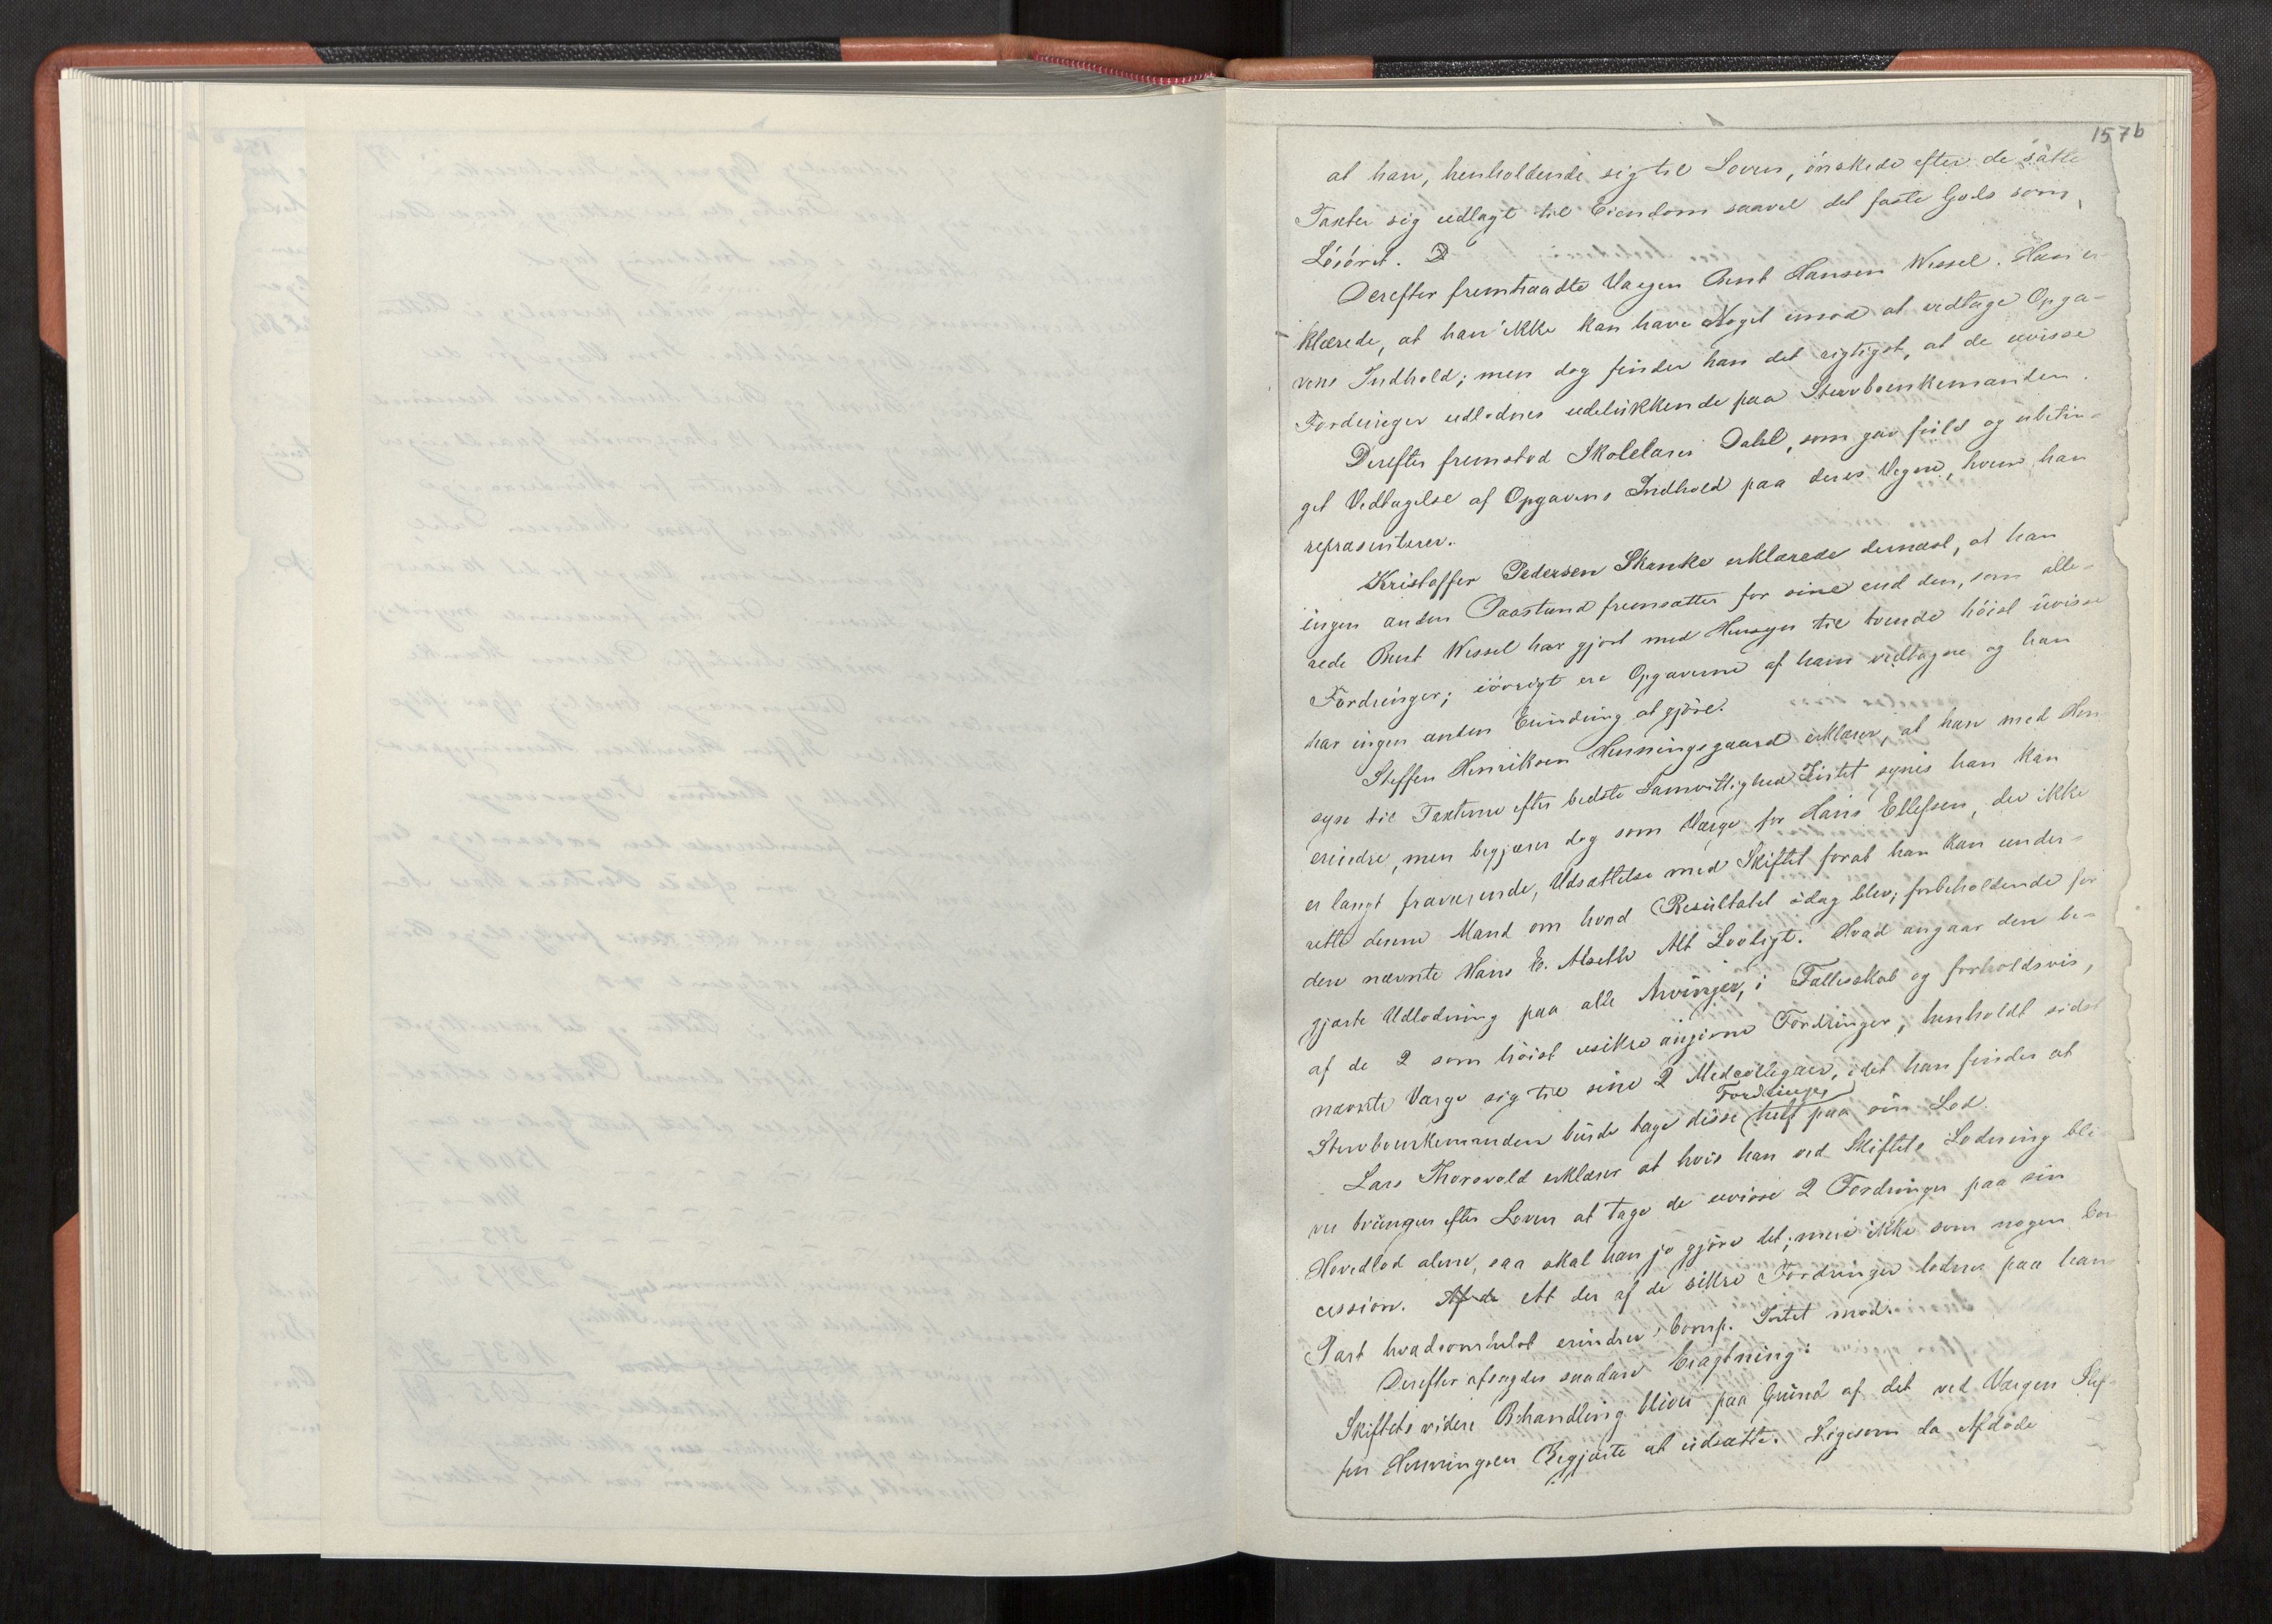 157b
at han, henholdende sig til Loven, ønskede efter de satte
Taxter sig udlagt til Eiendom saavel det faste Gods som
Løsøret.
Derefter fremtraadte Værgen Bent Hansen Wessel. Han er-
klærede, at han ikke kan have Noget imod at vedtage Opga-
vens Indhold; men dog finder han det rigtigst, at de uvisse
Fordringer udlodnes udelukkende paa Stervboenkemanden.
Derefter fremstod Skolelærer Dahl, som gav fuld og ubetin-
get Vedtagelse af Opgavens Indhold paa deres Vegne, hvem han
repræsenterer.
Kristoffer Pedersen Skanke erklærede dernæst, at han
ingen anden Paastand fremsætter for sine end den, som alle-
rede Bent Wessel har gjort med Hensyn til tvende høist uvisse
Fordringer; iøvrigt ere Opgaverne af ham vedtagne og han
har ingen anden Erindring at gjøre.
Steffen Henriksen Henningsgaard erklærer, at han med Hen
syn til Taxterne efter bedste Samvittighed Intet synes han kan
erindre, men begjærer dog som Værge for Hans Ellefsen, der ikke
er langt fraværende, Udsættelse med Skiftet forat han kan under-
rette denne Mand om hvad Resultatet idag blev; forbeholdende for
den nævnte Hans E. Alseth Alt Lovligt. Hvad angaar den be-
gjærte Udlodning paa alle Arvinger, i Fællesskab og forholdsvis,
af de 2 som høist usikre angivne Fordringer, henholdt sidst
nævnte Værge sig til sine 2 Medcollegaer, idet han finder at
Fordringer
Stervboenkemanden burde tage disse helt paa sin Lod.
Lars Thorsvold erklærer at hvis han ved Skiftets Lodning bli
ver tvungen efter Loven at tage de uvisse 2 Fordringer paa sin
Hovedlod alene, saa skal han jo gjøre det; men ikke som nogen Con
cession. Af de At der af de sikre Fordringer lodnes paa hans
Part hvadsomhelst erindrer Comp. Intet mod.
Derefter afsagdes saadan Eragtning:
Skiftets videre Behandling bliver paa Grund af det ved Værgen Stef-
fen Henningsen Begjærte at udsætte. Ligesom da Afdøde